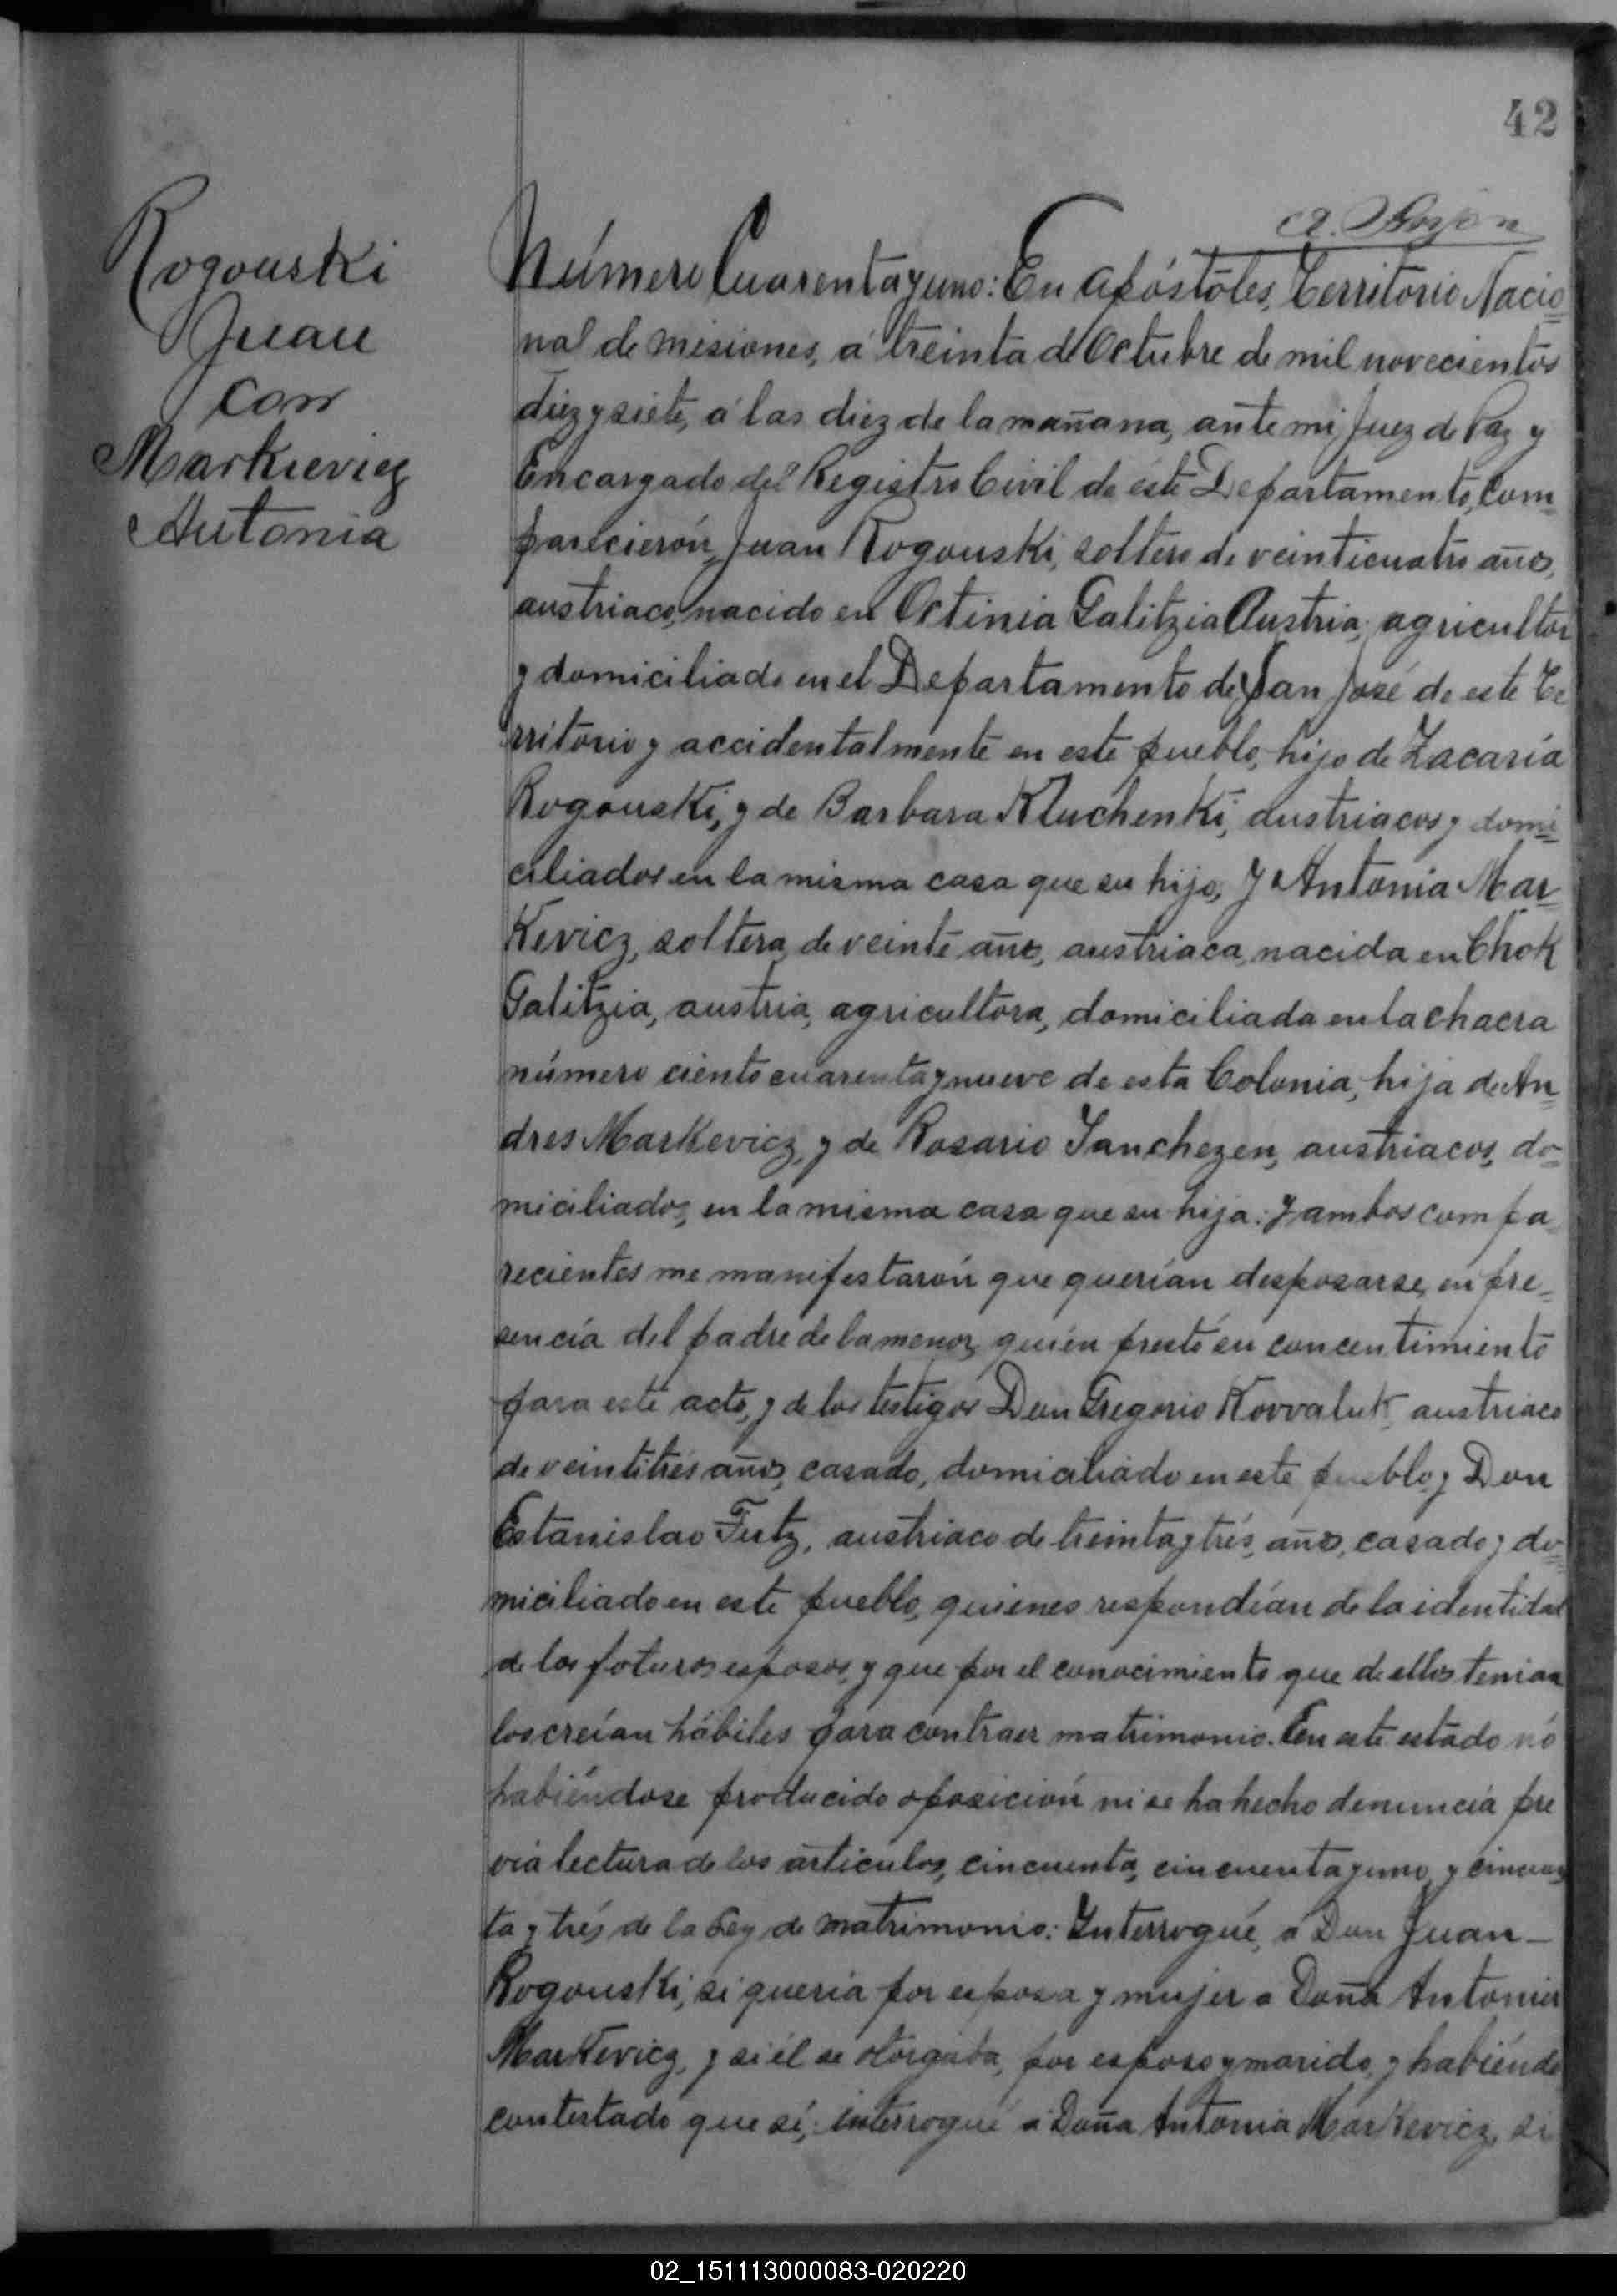 42
Rogouski
Juan
con
Markievicz
Antonia
Número Cuarenta y uno: En Apóstoles, Territorio Nacio=
nal de misiones, á treinta de Octubre de mil novecientos
diez y siete, á las diez de la mañana, ante mi, Juez de Paz y
Encargado del Registro Civil de éste Departamento, Com=
parecierón, Juan Rogouski, soltero de veinticuatro años,
austriaco, nacido en Octinia Galitzia Austria, agricultor
y domiciliado en el Departamento de San José de este Te
rritorio y accidentalmente en este pueblo, hijo de Zacaría
Rogouski, y de Barbara Kluchenki, austriacos y domi=
ciliados en la misma casa que su hijo, y Antonia Mar=
Kevicz, soltera, de veinte años, austriaca, nacida en Chok
Galitzia, austria, agricultora, domiciliada en la chacra
número ciento cuarenta y nueve de esta Colonia, hija de An=
dres Markevicz, y de Rosario Yanchezen, austriacos, do=
miciliados, en la misma casa que su hija: y ambos compa
recientes me manifestarón que querían desposarse, en pre=
sencia del padre de la menor, quién prestó su concentimiento
para este acto, y de los testigos Don Gregorio Kovvaluk, austriaco
de veintitrés años, casado, domiciliado en este pueblo, y Don
Estanislao Futz, austriaco de treinta y trés, años, casado y do=
miciliado en este pueblo, quienes respondían de la identidad
de los foturos esposos, y que por el conocimiento que de ellos tenian
los creían hábiles para contraer matrimonio. En este estado nó
habiéndose producido oposición ni se ha hecho denuncia pre
via lectura de los articulos, cincuenta, cincuenta y uno, y cincuen
ta y trés de la Ley de matrimonio: Interrogué, a Don Juan —
Rogouski, si queria por esposa y mujer a Doña Antonia
Markevicz, y si él se otorgaba, por esposo y marido, y habiéndo
contestado que sí; interrogué á Doña Antonia Markevicz, si
02_151113000083-020220